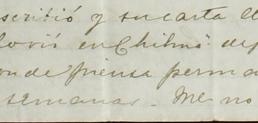 escribió y su carta de
lovió en Chihua dej
onde piensa perma
semanas - Me no